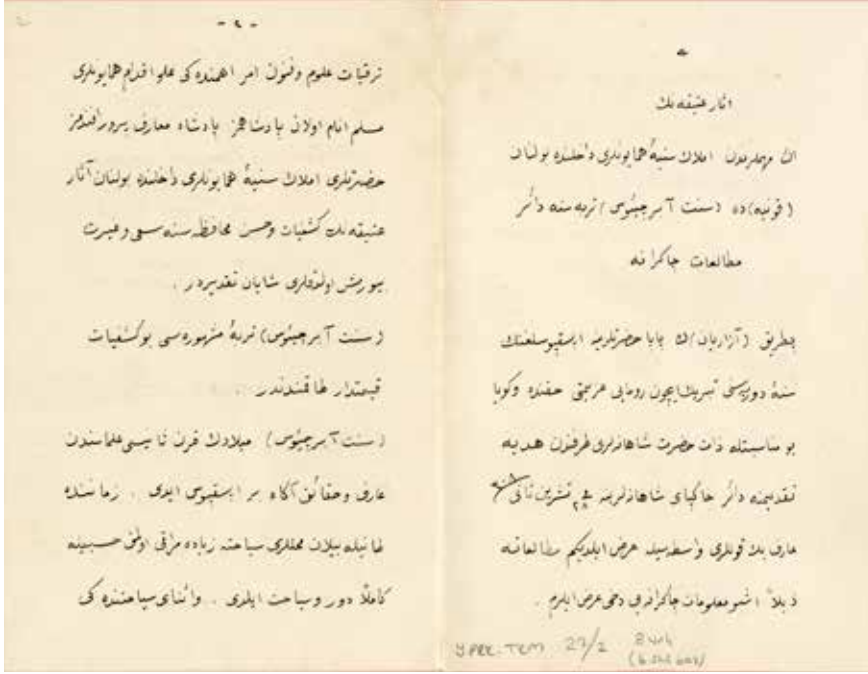 اثار عتيقه نك
اك مهملرندن املاك سنيۀ همايونلرى داخلنده بولنان
(قونيه) ده (سنت آبرچيئوس) تربه سنه دائر
مطالعات چاكرانه
پطريق (آزاريان) ك پاپا حضرتلرينه ابسقپوسلغنك
سنۀ دوريه‌سنى تبريك ايچون رومايى عزيمتى حقنده وكويا
بو مناسبتله ذات حضرت شاهانه‌لرى طرفندن هديه
تقديمنه دائر خاكپاى شاهانه‌لرينه تشرين ثانى
عارف بك قوللرى واسطه‌سيله عرض ايلديكم مطالعاته
ذيلاً اشبو معلومات چاكرانه‌مى دخى عرض ايلرم .
Y.PRK.TKM 27/2
- ٢ -
ترقيات علوم وفنون امر اهمنده كى علو اقدام همايونلرى
مسلم انام اولان پادشاهمز پادشاه معارف پرور افندمز
حضرتلرى املاك سنيۀ همايونلرى داخلنده بولنان آثار
عتيقه نك كشفيات وحسن محافظه سنه سعى وغيرت
بيورمش اولدقلرى شايان تقديردر .
(سنت آبرچيئوس) تربۀ مشهوره سى بو كشفيات
قيمتدار طاقندندر .
(سنت آبرچيئوس) ميلادك قرن ثانيسى علماسندن
عارف وحقائق آكاه بر ابسقپوس ايدى . زماننده
طانيله بيلان محللرى سياحته زياده مراقى اولمق حسبيله
كاملاً دور وسياحت ايلدى . واثناى سياحتنده كى